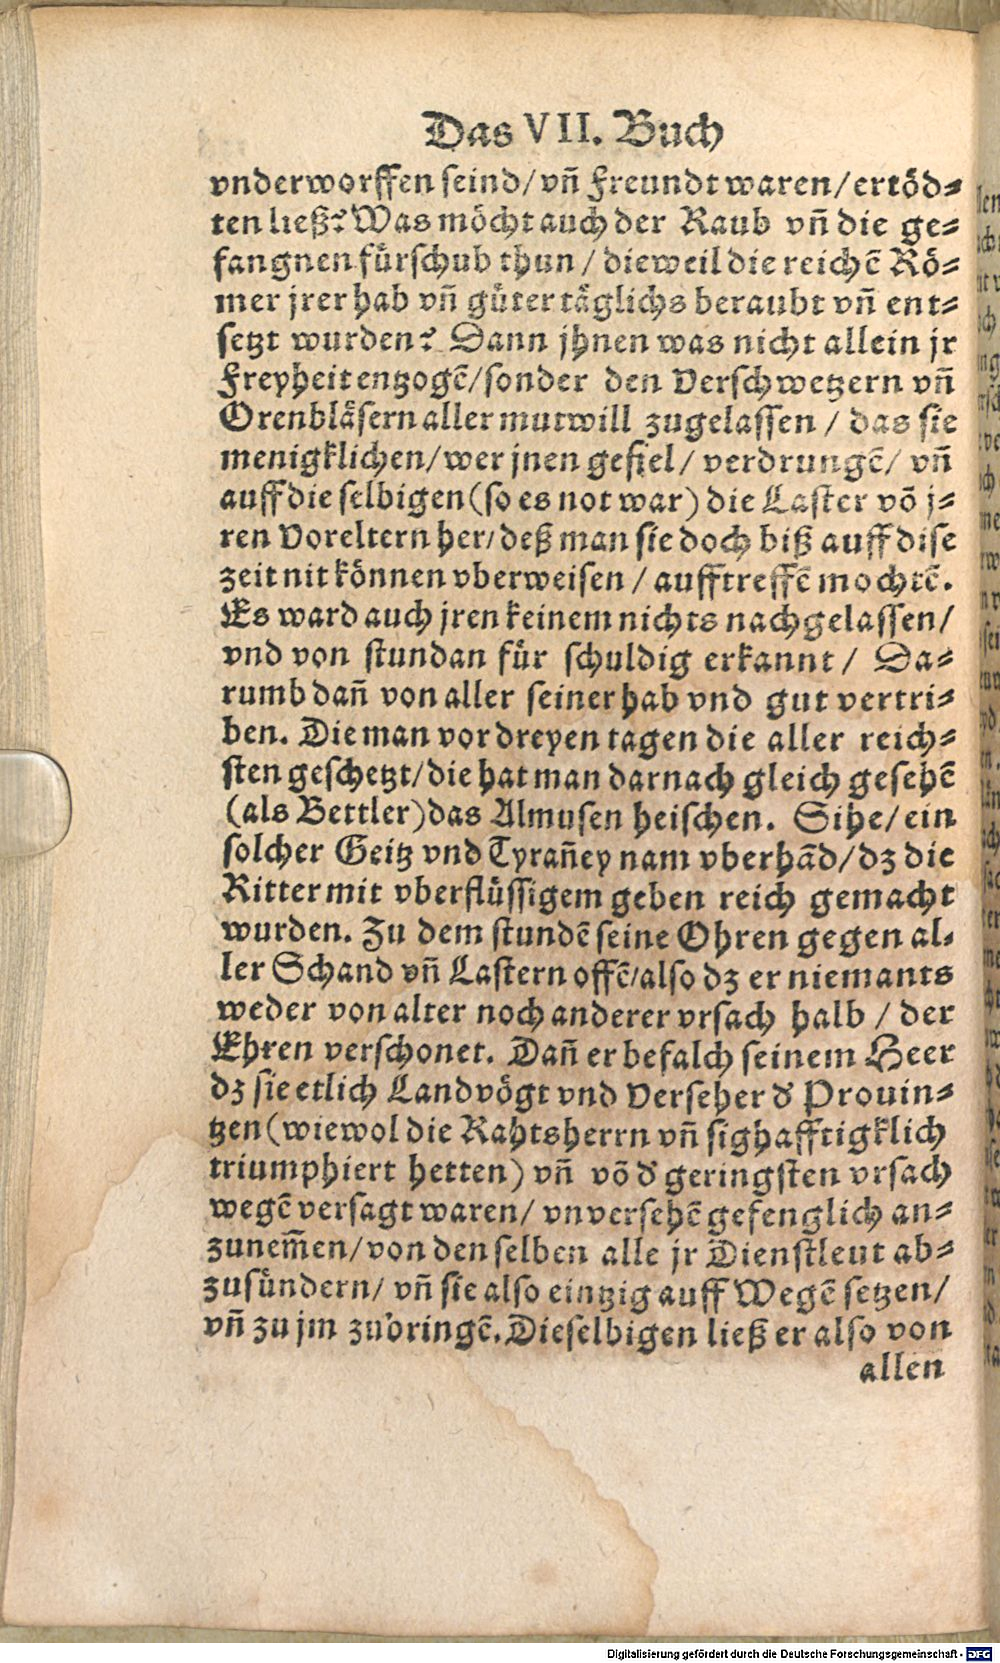 Das VII. Buch
vnderworffen seind/vñ Freundt waren/ertöd-
ten ließ? Was möcht auch der Raub vñ die ge-
fangnen fürschub thun / dieweil die reichē Rö-
mer jrer hab vñ güter täglichs beraubt vñ ent-
setzt wurden? Dann jhnen was nicht allein jr
Freyheit entzogē/sonder den Verschwetzern vñ
Orenbläsern aller mutwill zugelassen / das sie
menigklichen/wer jnen gefiel/ verdrungē/ vñ
auff die selbigen(so es not war) die Laster vō j-
ren Voreltern her/deß man sie doch biß auff dise
zeit nit können vberweisen / aufftreffē mochtē.
Es ward auch jren keinem nichts nachgelassen/
vnd von stundan für schuldig erkannt / Da-
rumb dañ von aller seiner hab vnd gut vertri-
ben. Die man vor dreyen tagen die aller reich-
sten geschetzt/die hat man darnach gleich gesehē
(als Bettler)das Almusen heischen. Sihe/ein
solcher Geitz vnd Tyrañey nam vberhād/dz die
Ritter mit vberflüssigem geben reich gemacht
wurden. Zu dem stundē seine Ohren gegen al-
ler Schand vñ Lastern offē/also dz er niemants
weder von alter noch anderer vrsach halb / der
Ehren verschonet. Dañ er befalch seinem Heer
dz sie etlich Landvögt vnd Verseher d' Prouin-
tzen(wiewol die Rahtsherrn vñ sighafftigklich
triumphiert hetten) vñ vō d' geringsten vrsach
wegē versagt waren/ vnversehē gefenglich an-
zunem̄en/von den selben alle jr Dienstleut ab-
zusündern/ vñ sie also eintzig auff Wegē setzen/
vñ zu jm zu bringē. Dieselbigen ließ er also von
allen
Digitalisierung gefördert durch die Deutsche Forschungsgemeinschaft - DFG